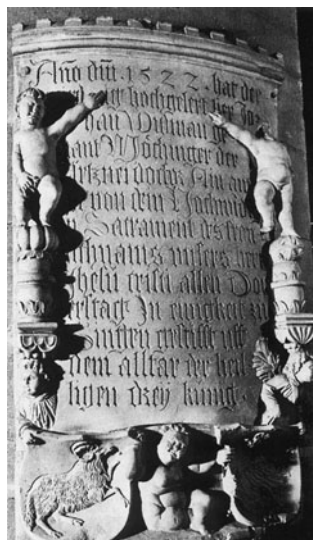 Año dm̃ · 1522 · hat der
hochgelert her Jo
han Widman ge
nant Möchinger der
artznei doctor Ain amt
von dem Hochwirdi
Sacrament des fron
lichnams unsers her
Jhesu cristi allen Do
rstag In ewigkeit zu
singen gestifft uff
dem alltar der heil
ligen drey kunig ·